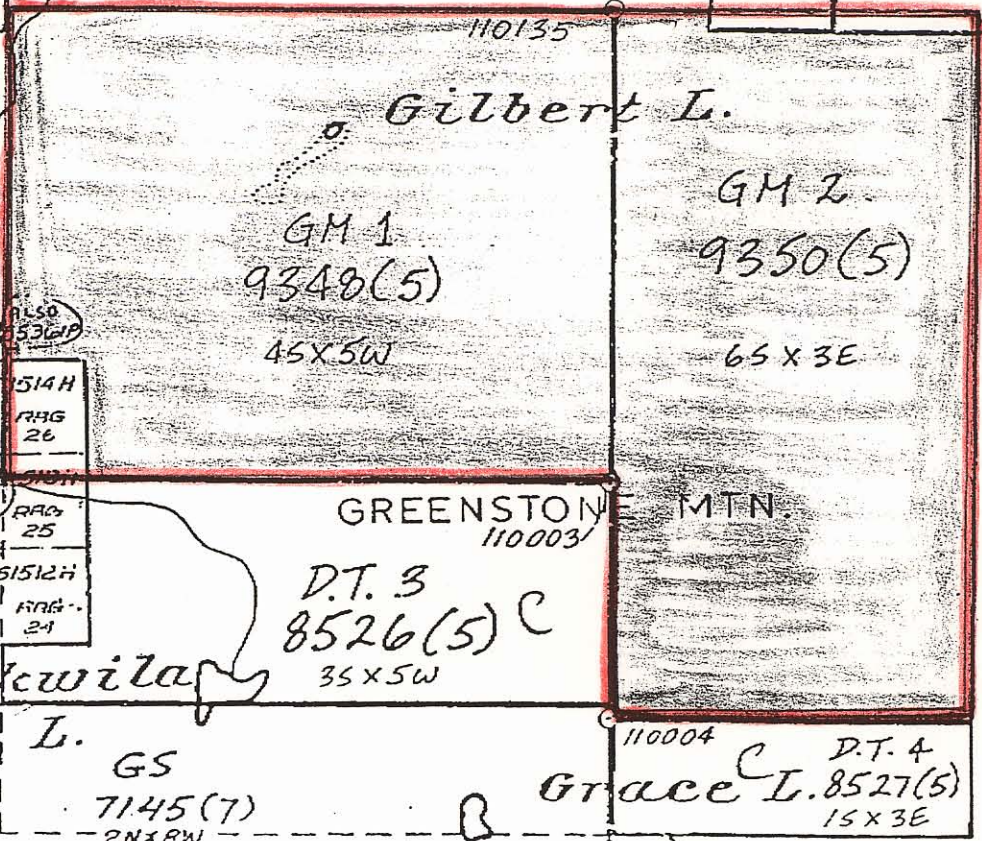 110135
Gilbert L.
GM 1
9348(5)
4S X 5W
GM 2
9350(5)
6S X 3E
ALSO
1514H
RAG
26
RAG
25
51512H
RAG
24
GREENSTON MTN.
110003
D.T. 3
8526(5) C
3S X 5W
kwila
L.
GS
7145(7)
2N X 8W
110004
C
Grace L.
D.T. 4
8527(5)
1S X 3E